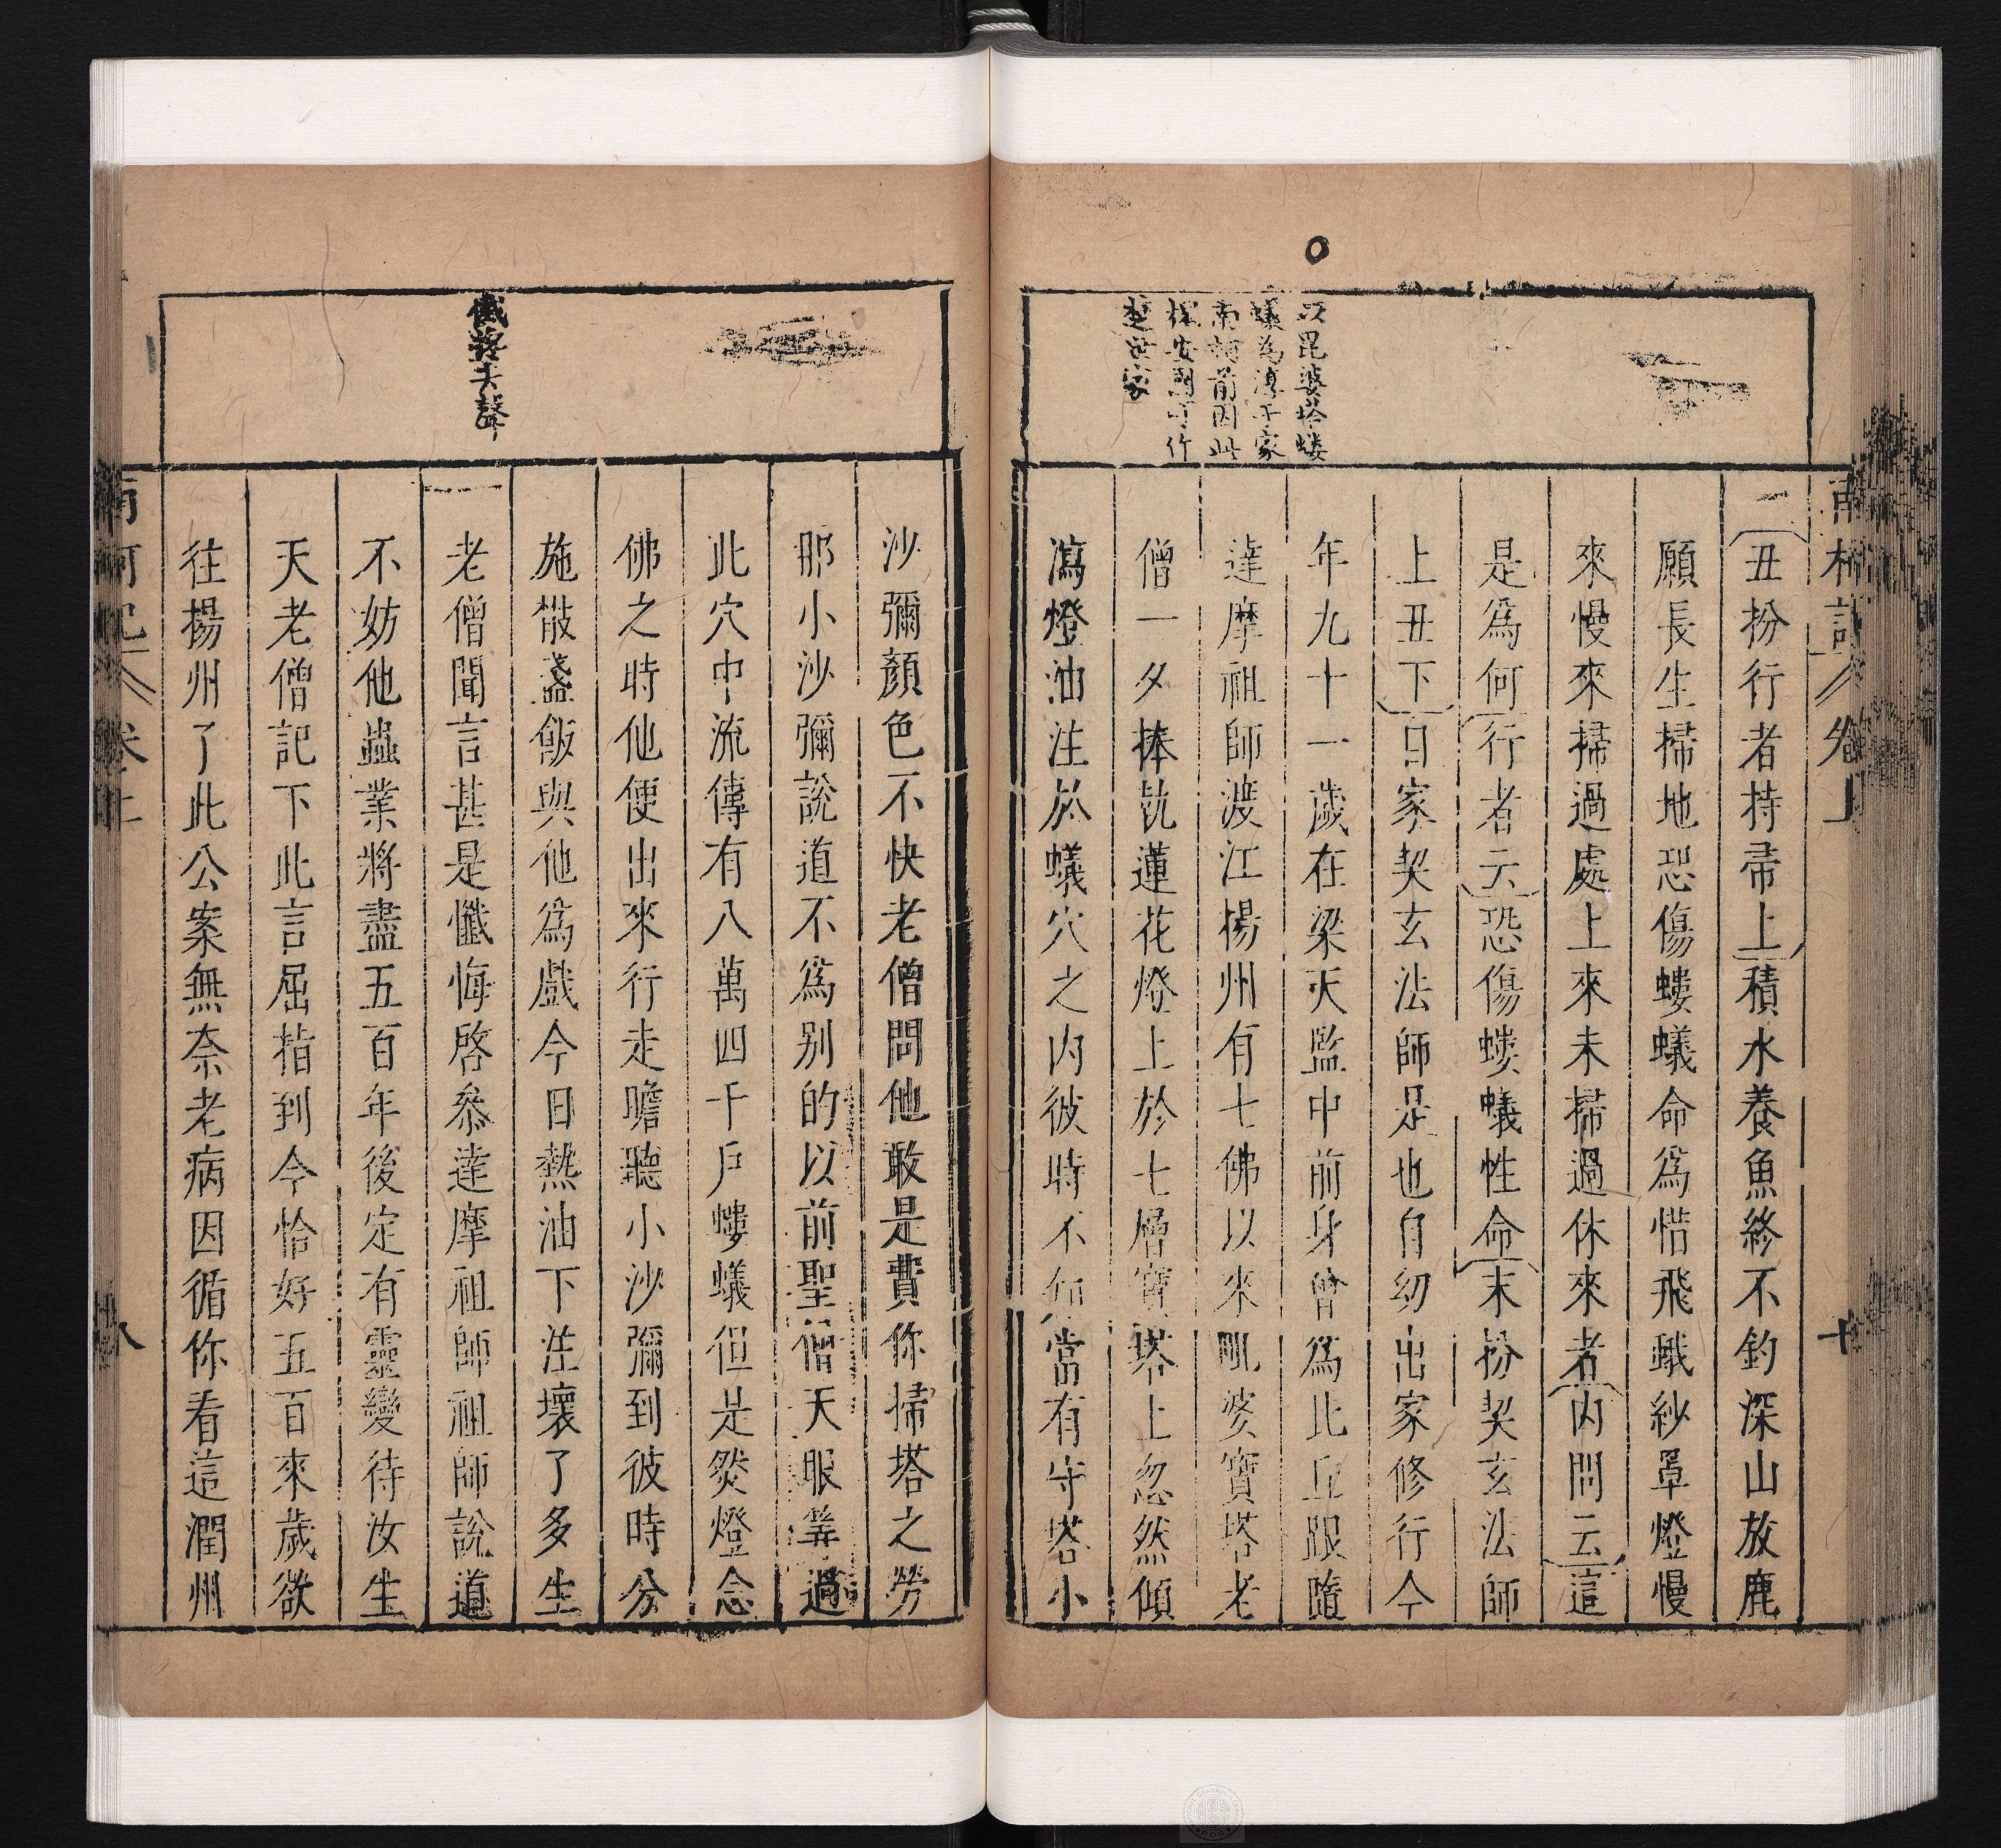 南柯記
卷上
十
以毘婆塔螻
蟻為淳于家
南柯前因此
二丑扮行者持帚上積水養魚終不釣深山放鹿
願長生掃地恐傷螻蟻命爲惜飛蛾紗罩燈慢
來慢來掃過處上來未掃過休來者內問云這
是爲何行者云恐傷螻蟻性命末扮契玄法師
上丑下自家契玄法師是也自幼出家修行今
年九十一歲在梁天監中前身曾爲比丘跟隨
達摩祖師渡江揚州有七佛以來毗婆寶塔老
僧一夕捧執蓮花燈上於七層寶塔上忽然傾
瀉燈油注於蟻穴之內彼時不知當有守塔小
懺將去聲
沙彌顏色不快老僧問他敢是費你掃塔之勞
那小沙彌說道不爲別的以前聖僧天眼筭過
此穴中流傳有八萬四千戶螻蟻但是燃燈念
佛之時他便出來行走瞻聽小沙彌到彼時分
施散盞飯與他爲戲今日熱油下注壞了多生
老僧聞言甚是懺悔啓叅達摩祖師祖師說道
不妨他蟲業將盡五百年後定有靈變待汝生
天老僧記下此言屈指到今恰好五百來歲欲
往揚州了此公案無奈老病因循你看這潤州
南柯記
卷上
八